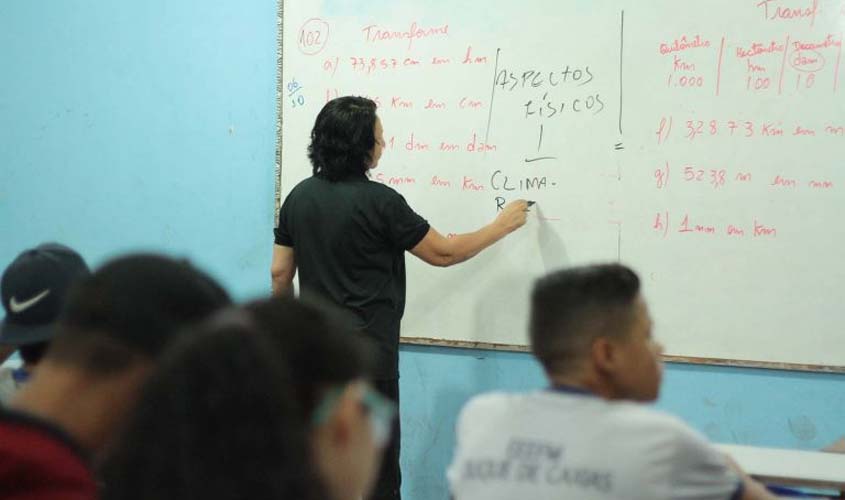 102 Transforme
a) 73,857 cm em hm
km em cm
1 dm em dam
5 mm em km
06
10
ASPECTOS
FÍSICOS
CLIMA-
R
=
Transf
Quilômetro
km
1.000
Hectômetro
hm
100
Decâmetro
dam
10
f) 328.73 km em m
g) 523,8 m em mm
h) 1 mm em km
EEEFM
DUQUE DE CAXIAS